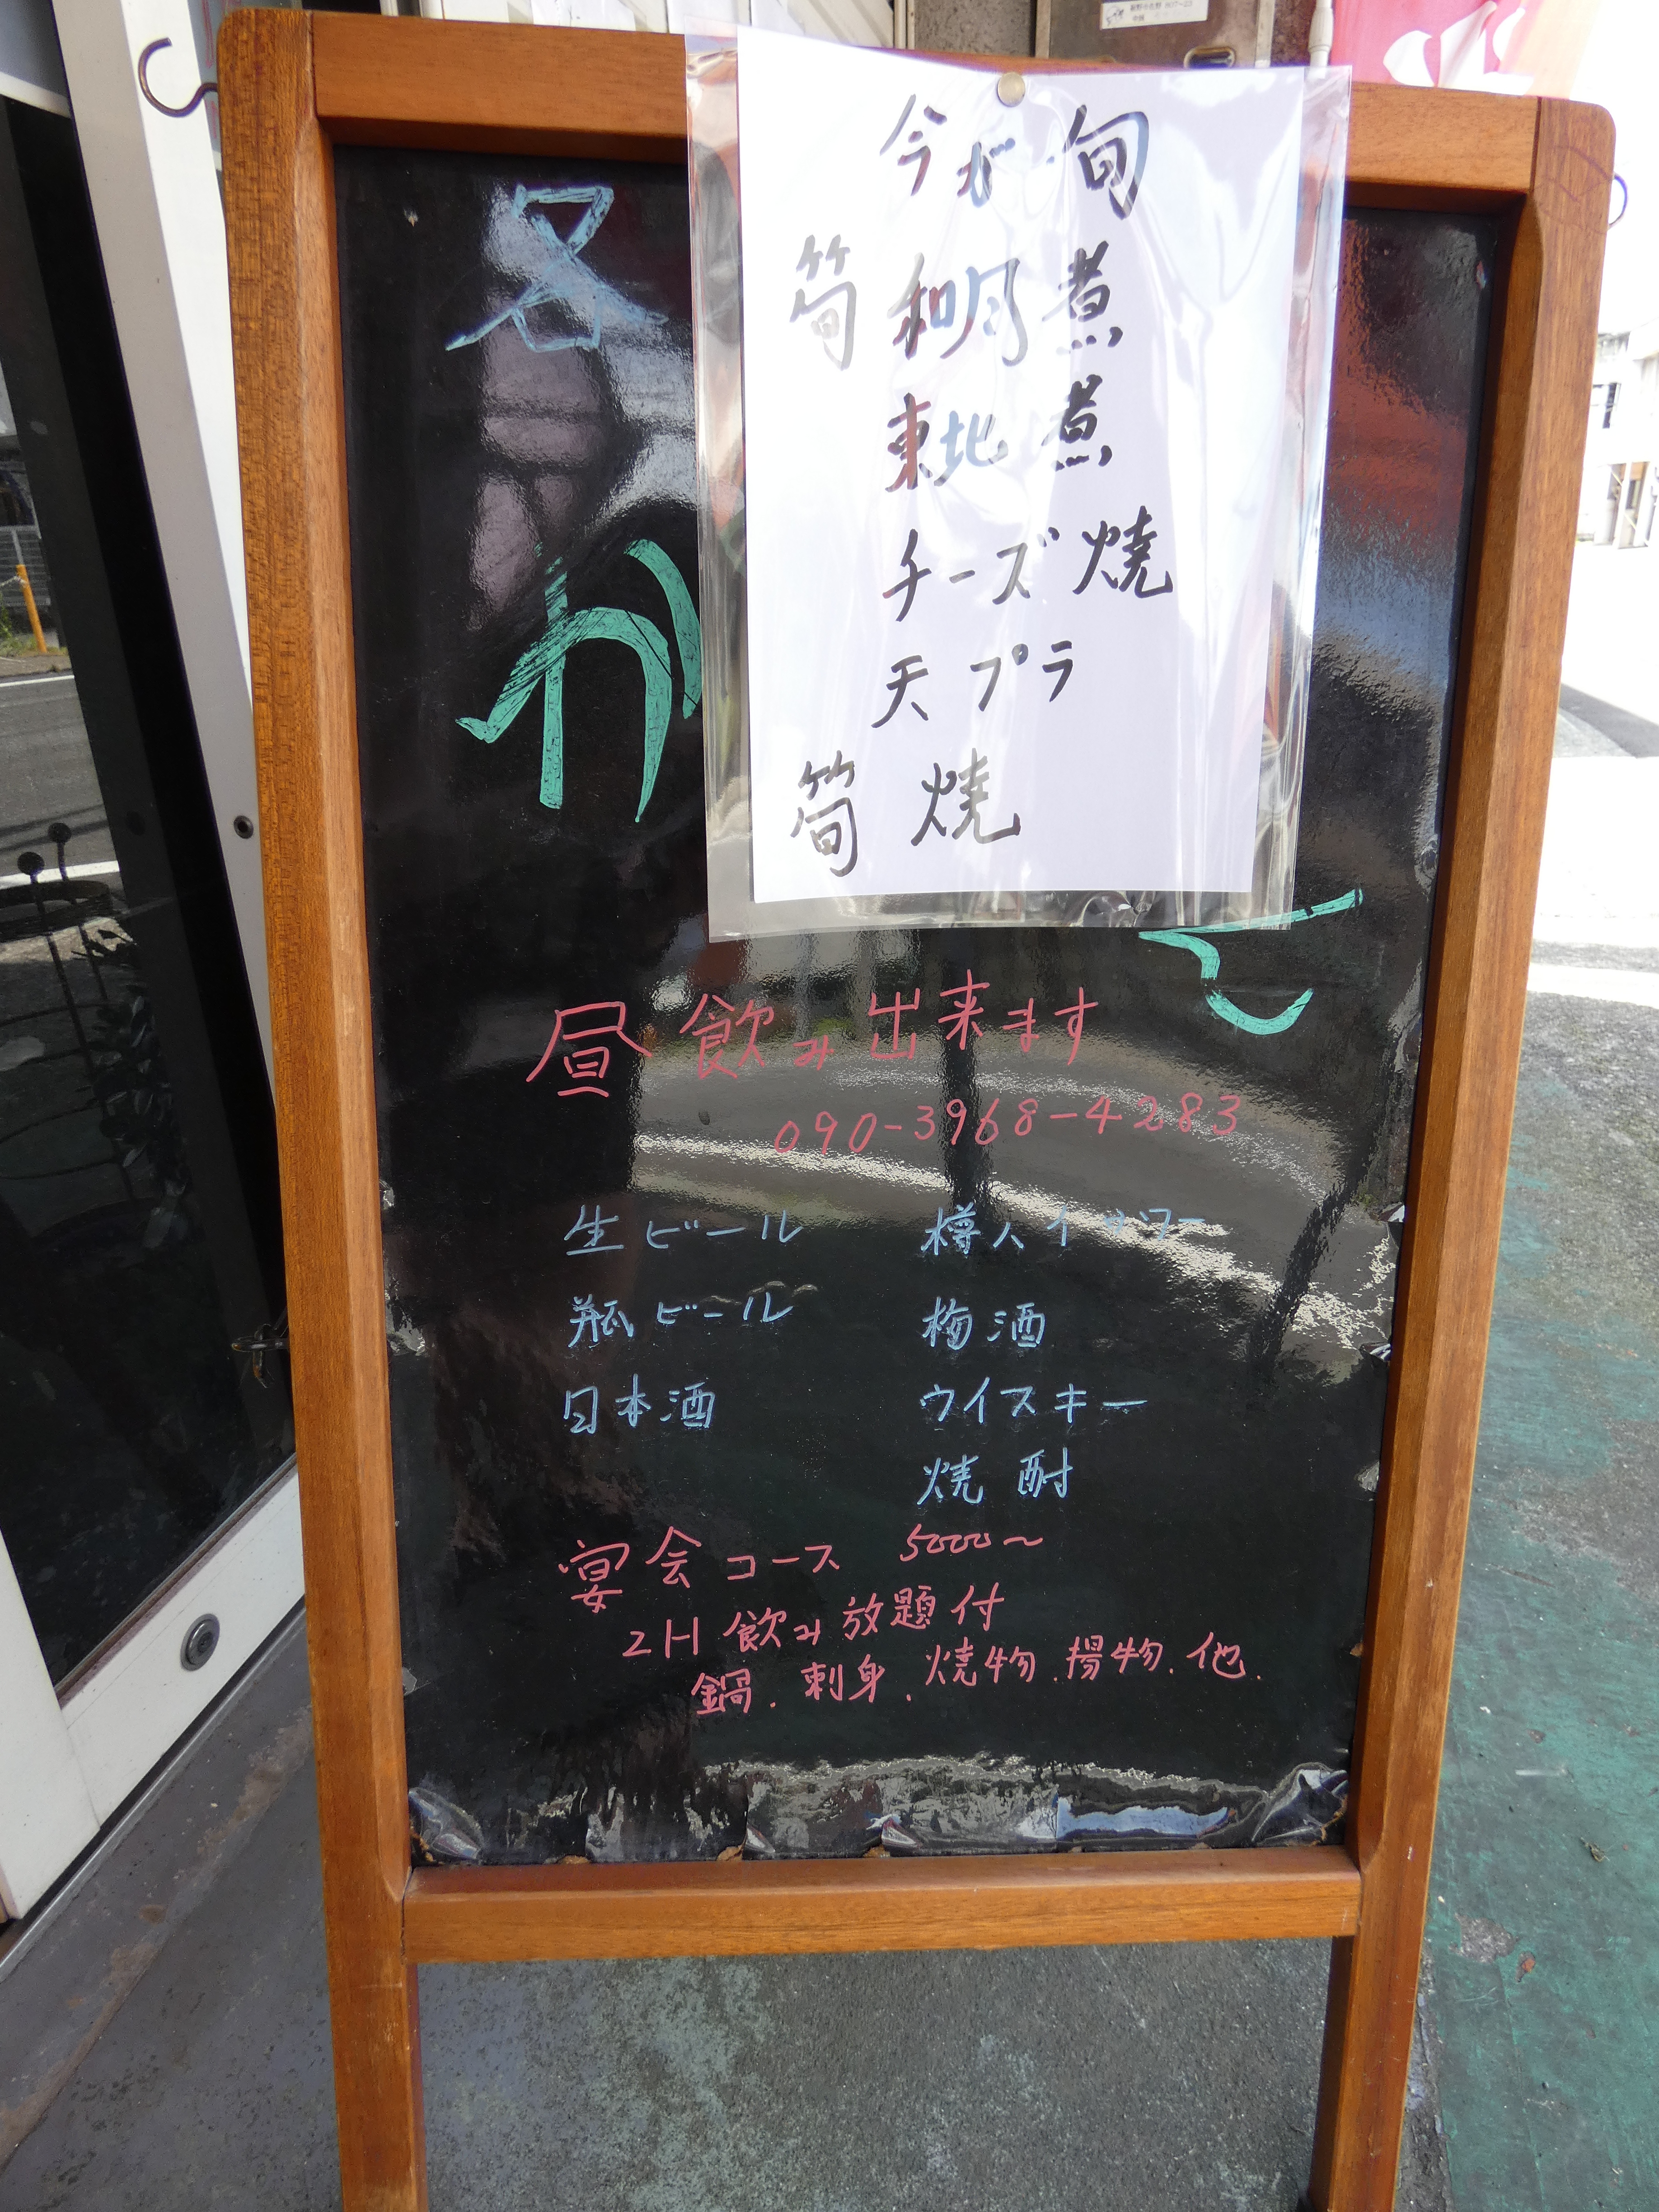 今が旬
筍 和風煮
東北煮
チーズ焼
天プラ
筍焼
名
が
昼飲み出来ます
090-3968-4283
生ビール 樽ハイサワー
瓶ビール 梅酒
日本酒 ウイスキー
焼酎
宴会コース 5000〜
2H飲み放題付
鍋.刺身.焼物.揚物.他.